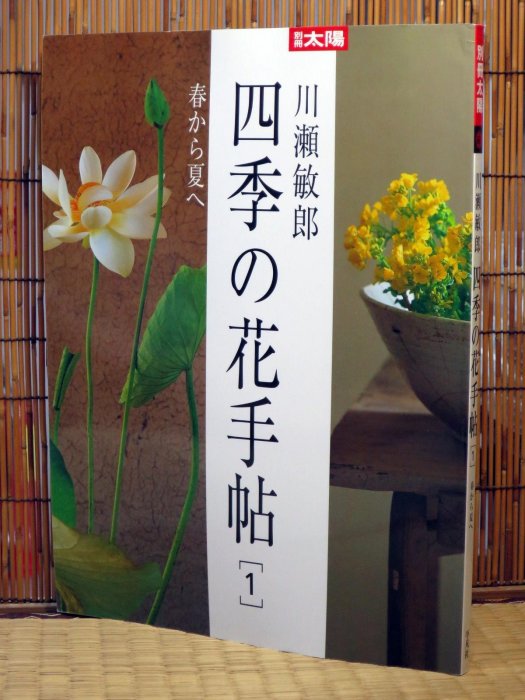 別冊太陽
川瀬敏郎
四季の花手帖
[1]
春から夏へ
別冊太陽
川瀬敏郎 四季の花手帖 [1] 春から夏へ
平凡社